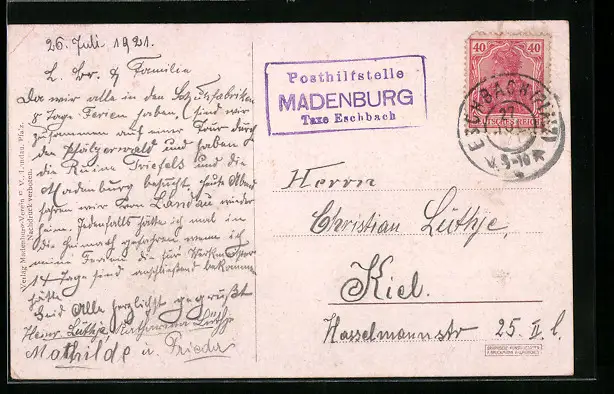 26. Juli 1921.
L. Br. & Familie
Da wir alle in den
8 Tage Ferien haben, sind wir
zusammen auf einer Tour durch
den Pfälzerwald und haben
die Ruine Trifels und die
Madenburg besucht, heute Abend
fahren wir von Landau wieder
heim. Jedenfalls hätte ich mal in
die Heimath gefahren wenn ich
meine Ferien die für
14 Tage sind anschliessend bekommen
hätte.
Seid Alle herzlichst gegrüßt
Heinr. Lüthje
Mathilde u. Frieda
Verlag Madenburg-Verein e. V., Landau, Pfalz.
Nachdruck verboten.
Posthilfstelle
MADENBURG
Taxe Eschbach
40 40
DEUTSCHES REICH
ESCHBACH (PFALZ)
27
V. 9-10
Herrn
Christian Lüthje,
Kiel.
Hasselmannstr 25. II. l.